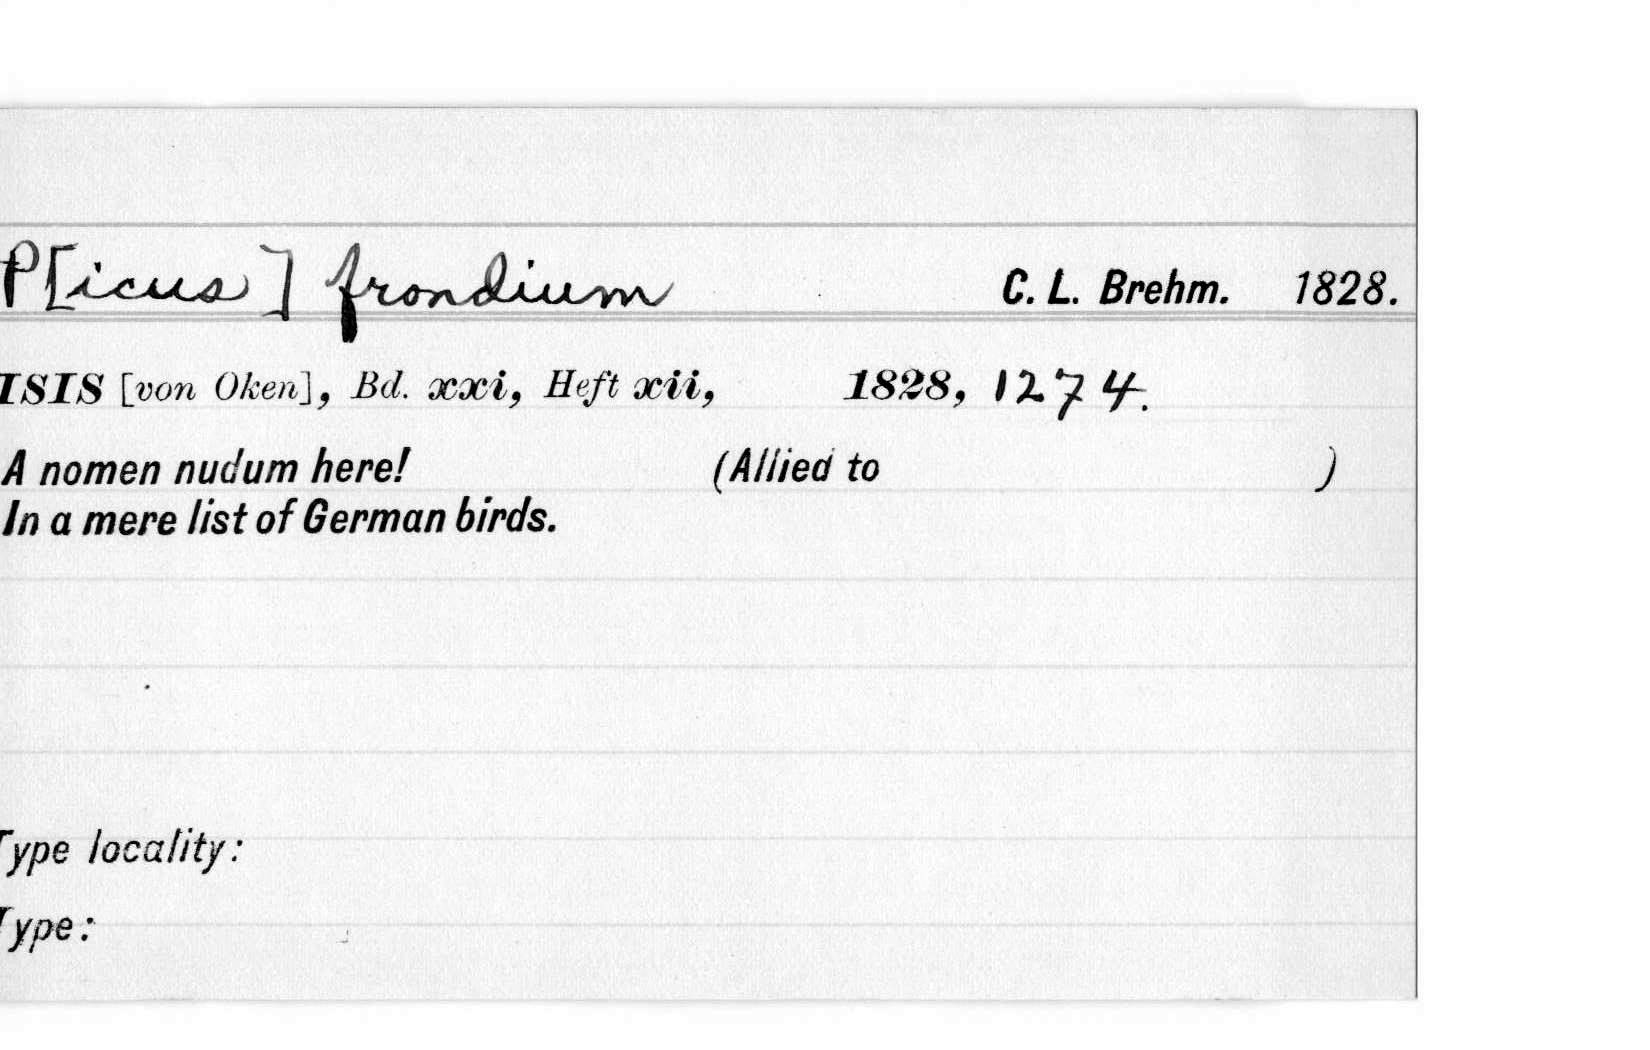 P[icus] frondium C. L. Brehm. 1828.
ISIS [von Oken], Bd. xxi, Heft xii, 1828, 1274.
A nomen nudum here! (Allied to )
In a mere list of German birds.
Type locality:
Type: